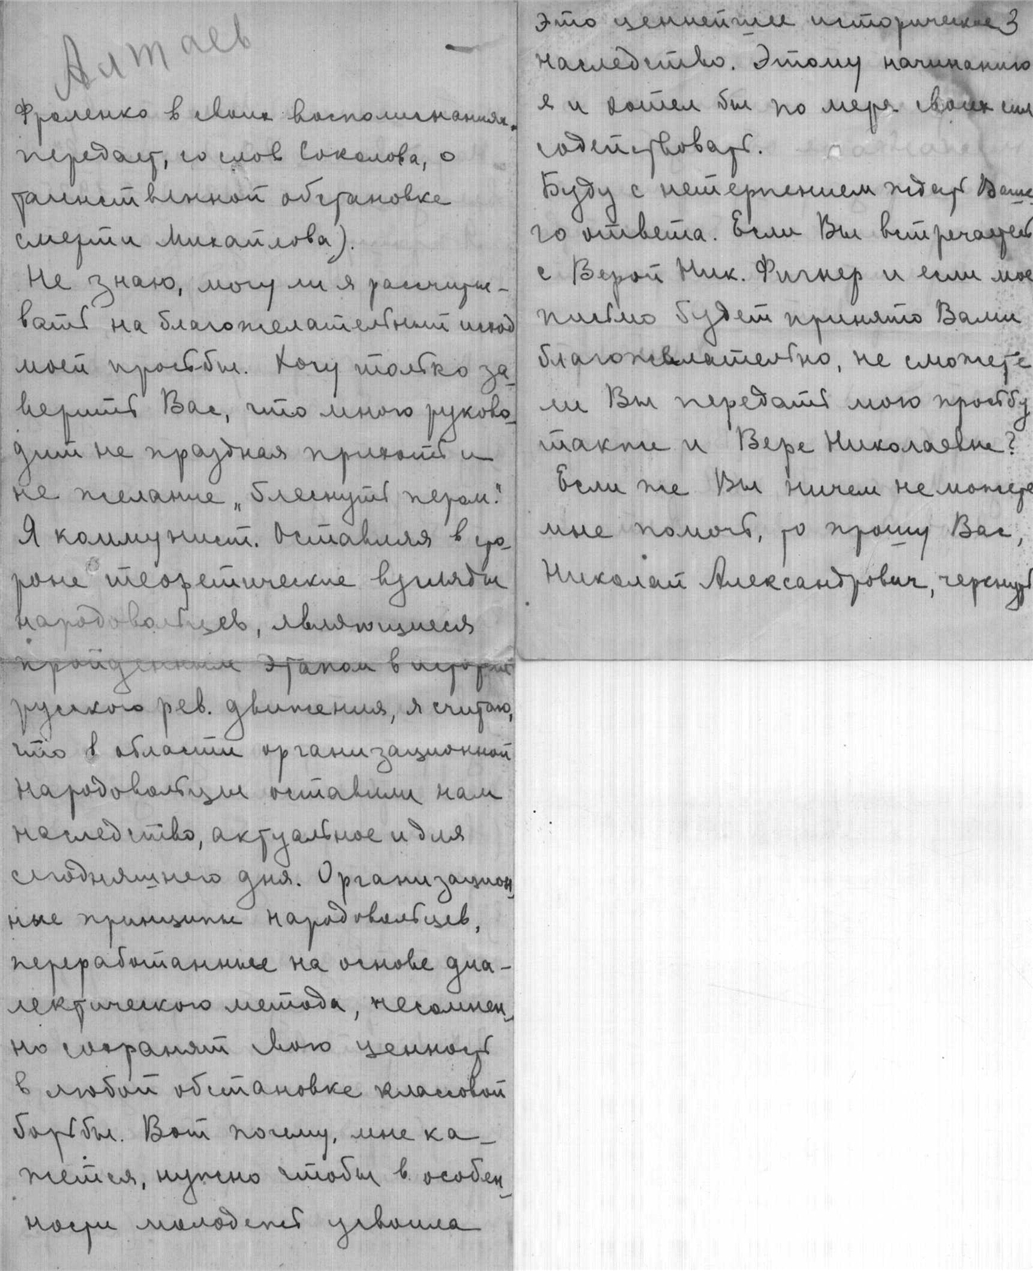 Алтаев
Фроленко в своих воспоминаниях
передает, со слов Соколова, о
таинственной обстановке
смерти Михайлова).
Не знаю, могу ли я рассчиты-
вать на благожелательный исход
моей просьбы. Хочу только за-
верить Вас, что мною руково-
дит не праздная прихоть и
не желание „блеснуть пером".
Я коммунист. Оставляя в сто-
роне теоретические взгляды
народовольцев, являющиеся
пройденным этапом в истории
русского рев. движения, я считаю,
что в области организационной
народовольцы оставили нам
наследство, актуальное и для
сегодняшнего дня. Организацион-
ные принципы народовольцев,
переработанные на основе диа-
лектического метода, несомнен-
но сохранят свою ценность
в любой обстановке классовой
борьбы. Вот почему, мне ка-
жется, нужно чтобы в особен-
ности молодежь усвоила
это ценнейшее историческое 3
наследство. Этому начинанию
я и хотел бы по мере своих сил
содействовать.
Буду с нетерпением ждать Ваше
го ответа. Если Вы встречаетесь
с Верой Ник. Фигнер и если мое
письмо будет принято Вами
благожелательно, не сможете
ли Вы передать мою просьбу
также и Вере Николаевне?
Если же Вы ничем не можете
мне помочь, то прошу Вас,
Николай Александрович, черкнуть